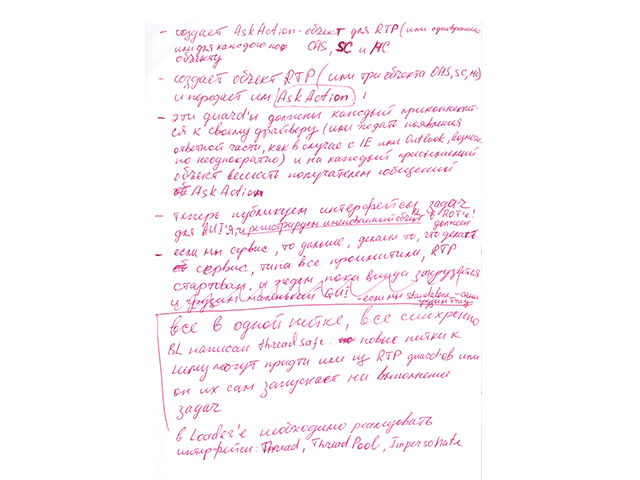 - создает AskAction-объект для RTP (или одновременно
или для каждого из OAS, SC и МС
объекту
- создает объект RTP (или три объекта OAS, SC, МС)
и передает им AskAction!
- эти guard'ы должны каждый приконнектит-
ся к своему драйверу (или ждать появления
ответной части, как в случае с IE или Outlook,
по неоднократно) и на каждый присланный
объект вешать получателем сообщений
AskAction
- теперь публикуем интерфейсы BL задач
для GUI'я, и регистрируем именованный объект в ROT'е!
должен
- если мы сервис, то дальше, делаем то, что делает
сервис, типа все проинитили, RTP
стартовал, и ждем пока винда загрузится
и грузим маленький GUI - если мы standalone - сами
грузим Tray
все в одной нитке, все синхронно
BL написан thread safe. новые нитки к
нему могут придти или из RTP guard'ов или
он их сам запускает на выполнение
задач
в Loader'е необходимо реализовать
интерфейсы: Thread, ThreadPool, Impersonate